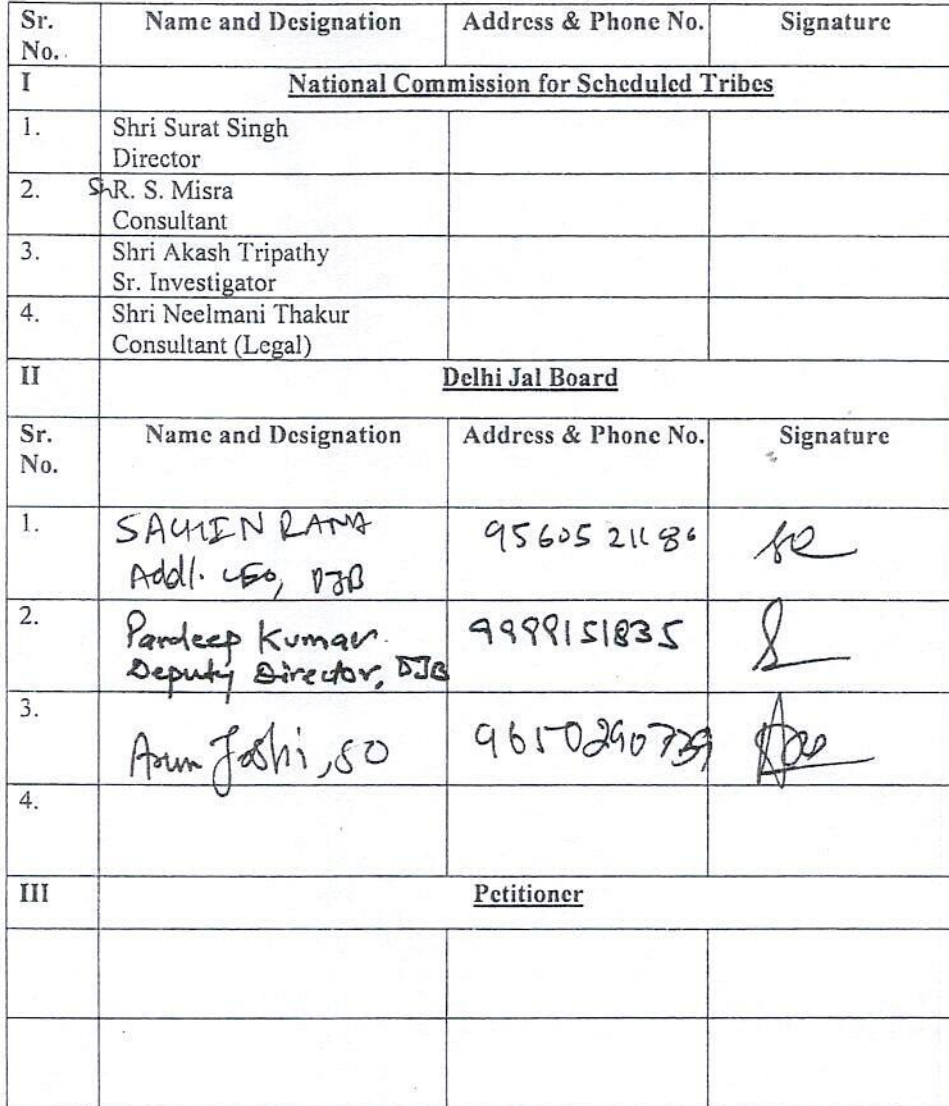 Sr. No. Name and Designation Address & Phone No. Signature
I National Commission for Scheduled Tribes
1. Shri Surat Singh
Director
2. Sh R. S. Misra
Consultant
3. Shri Akash Tripathy
Sr. Investigator
4. Shri Neelmani Thakur
Consultant (Legal)
II Delhi Jal Board
Sr. No. Name and Designation Address & Phone No. Signature
1. SACHIN RANA
Addl. CEO, DJB
2. Pardeep Kumar 9999151835
Deputy Director, DJB
3. Arun Joshi, SO 9650290739
4.
III Petitioner